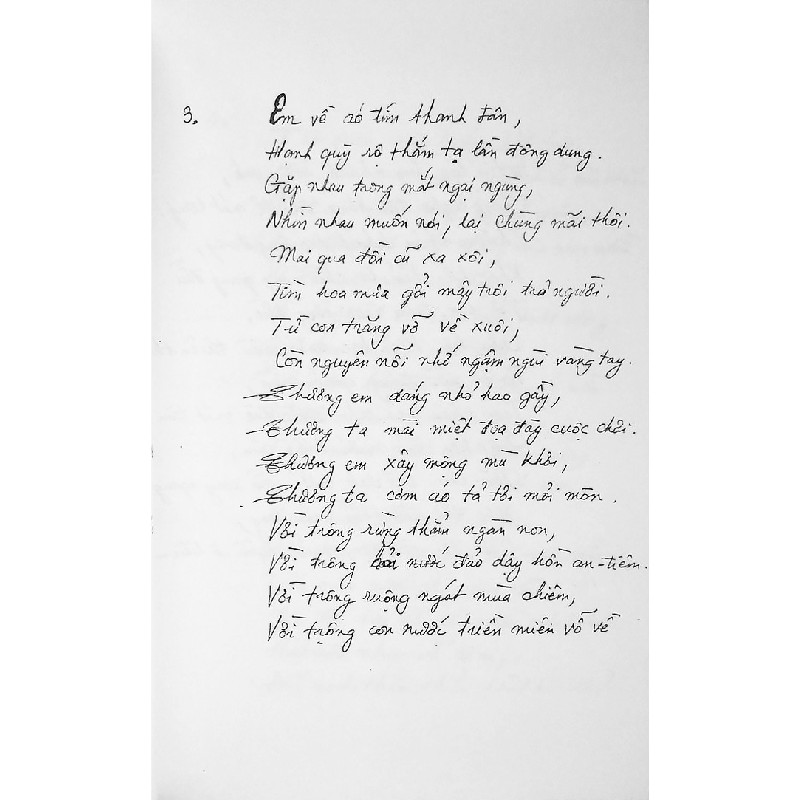 3. Em về áo tím thanh tân,
Hạnh quỳ rõ thắm tạ lần đông dung.
Gặp nhau trong mắt ngại ngùng,
Nhìn nhau muốn nói, lại chừng mãi thôi.
Mai qua đồi cũ xa xôi,
Tìm hoa mùa gởi mây trôi trả người.
Từ con trăng vỡ về xuôi,
Còn nguyên nỗi nhớ ngậm ngùi vàng tay.
Thương em dáng nhỏ hao gầy,
Thương ta mải miệt đọa đày cuộc chơi.
Thương em xây mộng mù khơi,
Thương ta cơm áo tả tơi mỏi mòn.
Vời trông rừng thẳm ngàn non,
Vời trông nước đảo dậy hồn an-tiêm.
Vời trông ruộng ngát mùa chiêm,
Vời trông con nước triền miên vỗ về